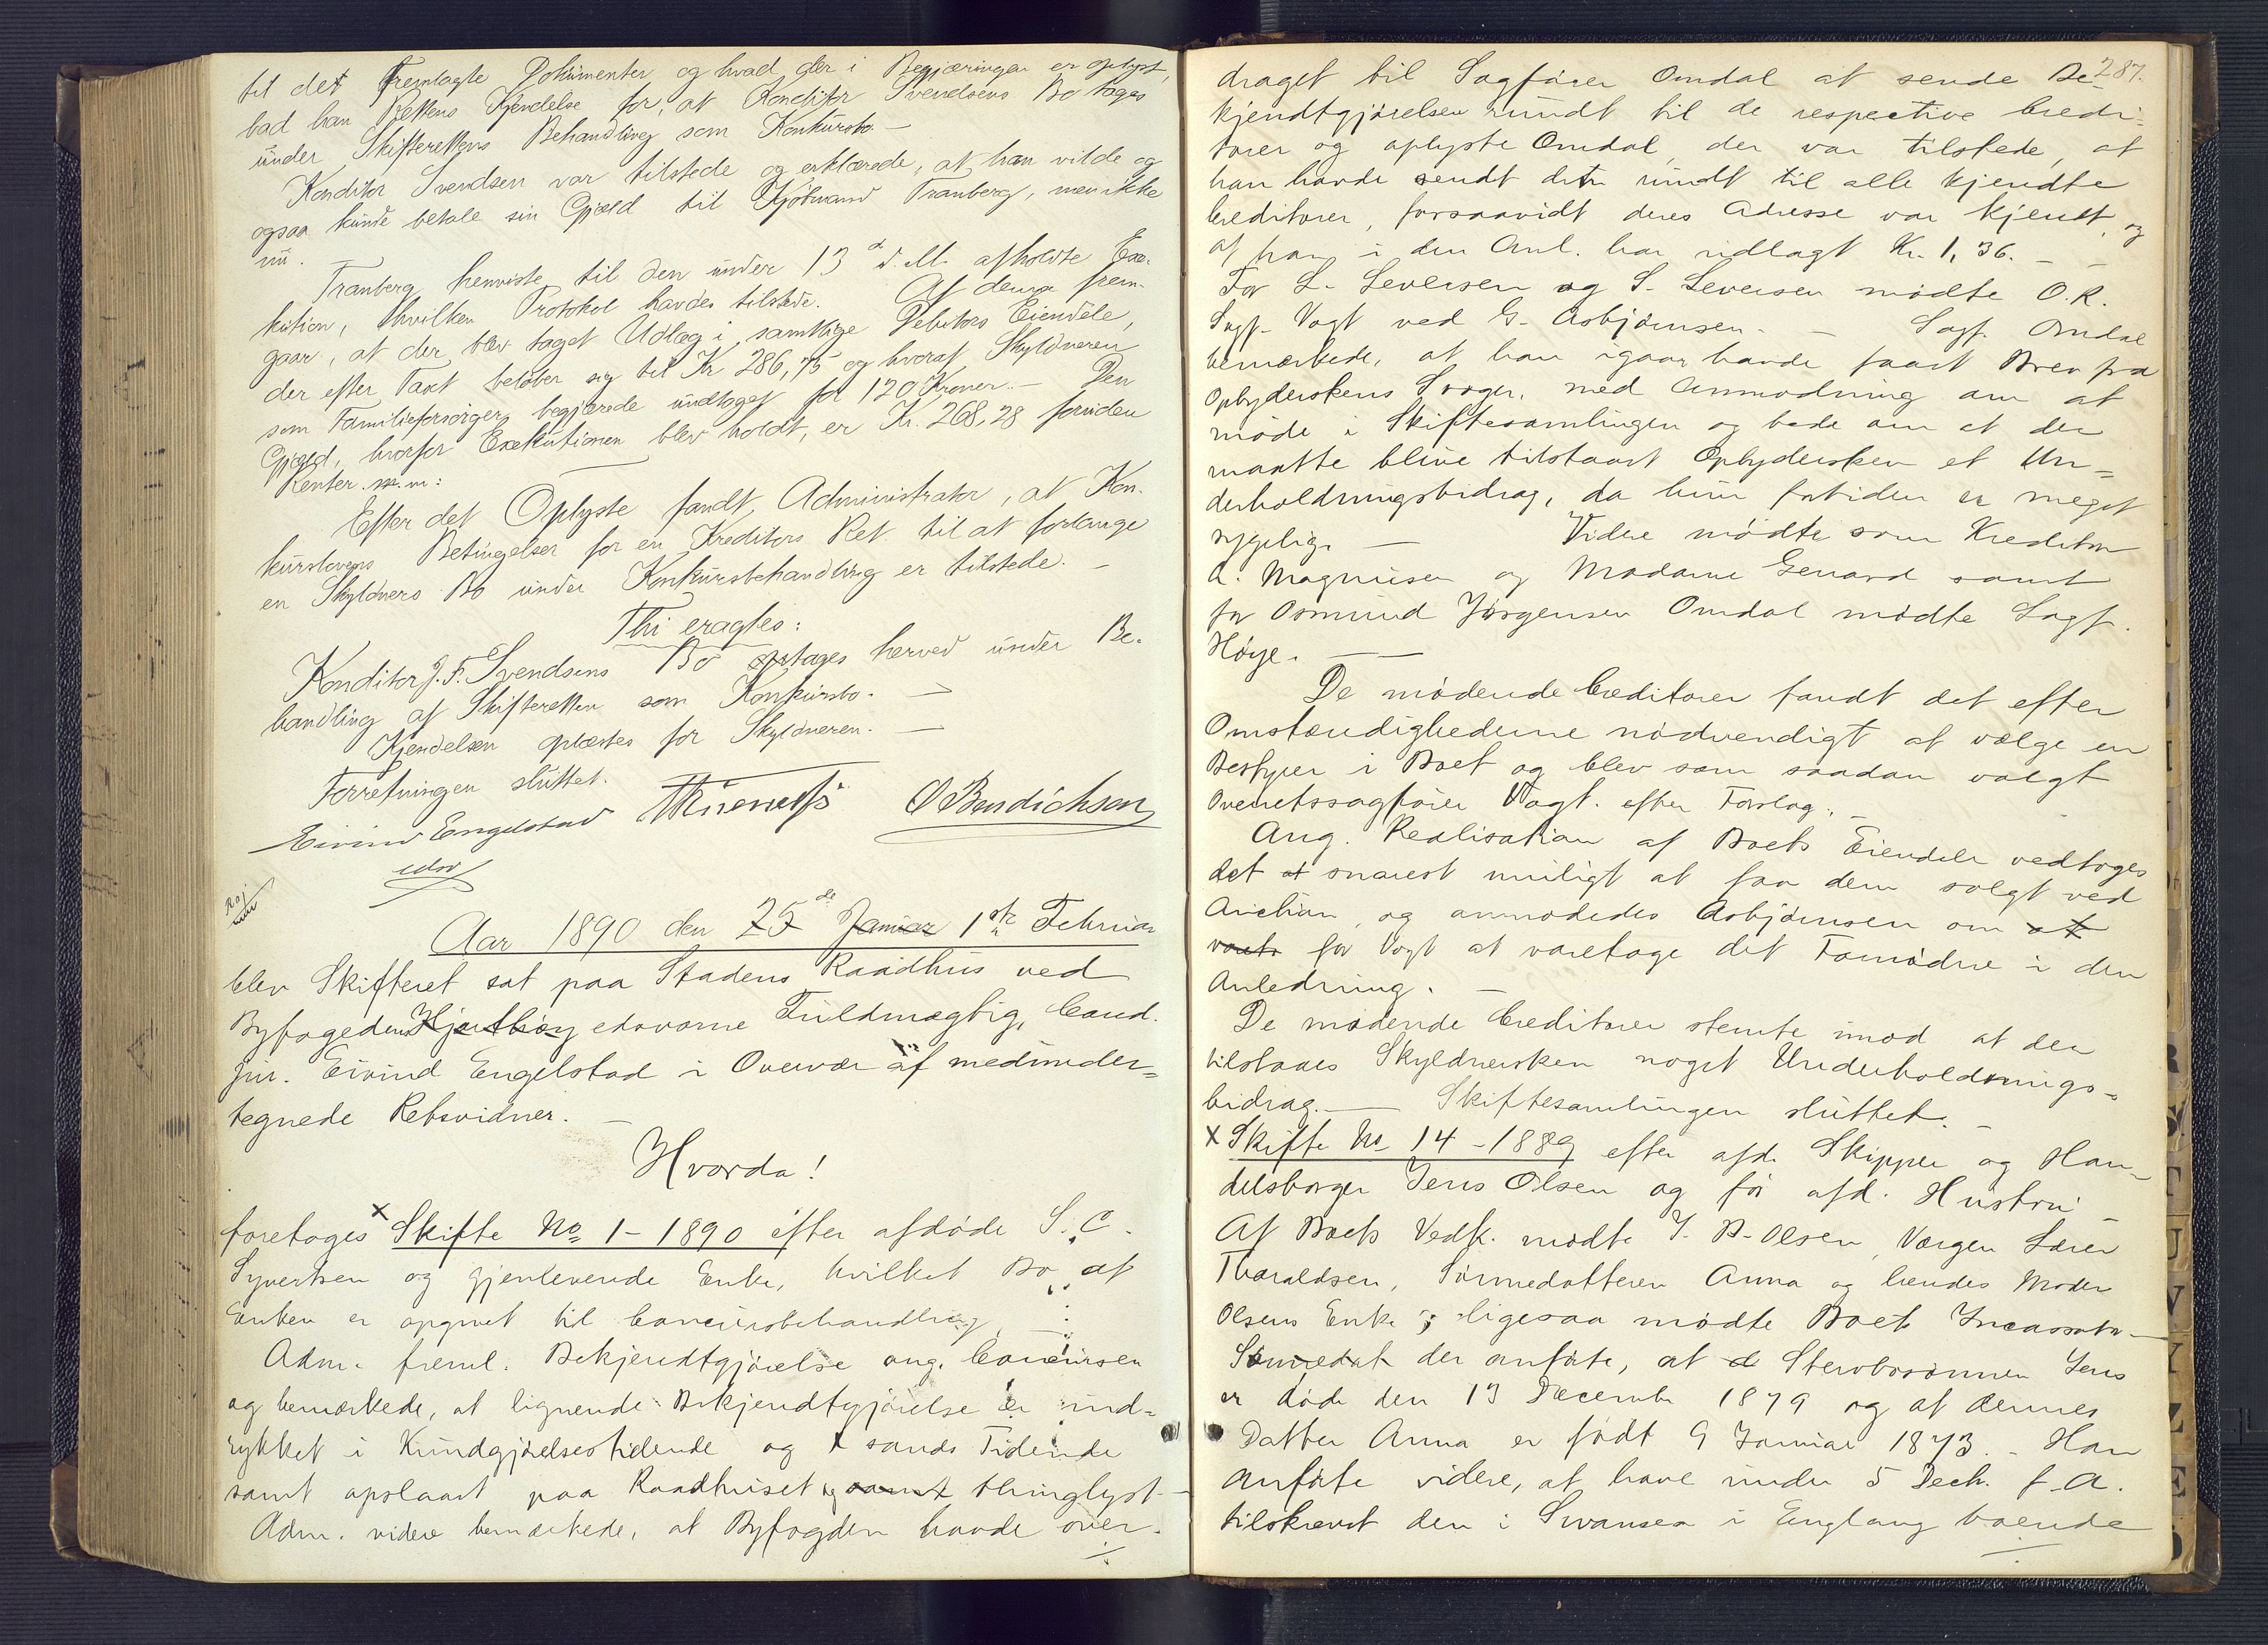 til det fremlagte Dokumenter og hvad der i Begjæringen er oplyst,
bad han Rettens Kjendelse for, at Konditor Svendsens Bo tages
under Skifterettens Behandling som Konkursbo. —
Konditor Svendsen var tilstede og erklærede, at han vilde og
ogsaa kunde betale sin Gjæld til Kjøbmand Tranberg, men ikke
nu.
Tranberg henviste til den under 13 d. M. afholdte Exe-
kution, hvilken Protokol havdes tilstede. Af denne frem-
gaar, at der blev taget Udlæg i samtlige Debitors Eiendele,
der efter Taxt beløber sig til Kr 286,75 og hvoraf Skyldneren
som Familieforsørger begjærede undtaget for 120 Kroner. — Den
Gjæld, hvorfor Exekutionen blev holdt, er Kr. 268,28 foruden
Renter m.m:
Efter det Oplyste fandt Administrator, at Kon-
kurslovens Betingelser for en Kreditors Ret til at forlange
en Skyldners Bo under Konkursbehandling er tilstede. —
Thi eragtes:
Konditor J. F. Svendsens Bo optages herved under Be-
handling af Skifteretten som Konkursbo. —
Kjendelsen oplæstes for Skyldneren. —
Forretningen sluttet.
Eivind Engelstad O Bendichsen
edsv
Aar 1890 den 25de Januar 1ste Februar
blev Skifteret sat paa Stadens Raadhus ved
Byfogeden Hjorthøy edsvorne Fuldmægtig, Cand.
jur. Eivind Engelstad i Overvær af medunder=
tegnede Retsvidner. —
Hvorda!
foretoges x Skifte No 1 - 1890 efter afdøde S. C.
Syvertsen og gjenlevende Enke, hvilket Bo af
Enken er opgivet til Concursbehandling. —
Adm. freml. Bekjendtgjørelse ang. Concursen
og bemærkede, at lignende Bekjendtgjørelse er ind=
rykket i Kundgjørelsestidende og x sands Tidende
samt opslaaet paa Raadhuset og samt thinglyst —
Adm. videre bemærkede, at Byfogden havde over-
287.
draget til Sagfører Omdal at sende Be-
kjendtgjørelsen rundt til de respective Credi=
torer og oplyste Omdal, der var tilstede, at
han havde sendt den rundt til alle kjendte
Creditorer, forsaavidt deres Adresse var kjendt, og
at han i den Anl. har udlagt Kr. 1,36. — —
For L. Seversen og S. Seversen mødte O.R.
Sagf. Vogt ved G. Asbjørnsen. — Sagf. Omdal
bemærkede, at han igaar havde faaet Brev fra
Opbyderskens Svoger, med Anmodning om at
møde i Skiftesamlingen og bede om at der
maatte blive tilstaaet Opbydersken et Un=
derholdningsbidrag, da hun fortiden er meget
sygelig. — Videre mødte som Kreditor
A. Magnusen og Madame Genard samt
for Osmund Jørgensen Omdal mødte Sagf.
Høye. —
De mødende Creditorer fandt det efter
Omstændighederne nødvendigt at vælge en
Bestyrer i Boet og blev som saadan valgt
Overretssagfører Vogt. efter Forslag. —
Ang. Realisation af Boets Eiendele vedtoges
det at snarest muligt at faa dem solgt ved
Auction, og anmodedes Asbjørnsen om at
for Vogt at varetage det Fornødne i den
Anledning. —
De mødende Creditorer stemte imod at der
tilstaaes Skyldnersken noget Underholdnings-
bidrag. — Skiftesamlingen sluttet. —
x Skifte No 14 - 1889 efter afd. Skipper og Han-
delsborger Jens Olsen og før afd. Hustru —
Af Boets Vedk. mødte J. B. Olsen, Værgen Lærer
Tharaldsen, Sønnedatteren Anna og hendes Moder
Olsens Enke; ligesaa mødte Boets Incassator
Sønnedat der anførte, at d Stervbosønnen Jens
er døde den 13 December 1879 og at dennes
Datter Anna er født 9 Januar 1873. — Han
anførte videre, at have under 5 Decb. f. A.
tilskrevet den i Swansea i England boende